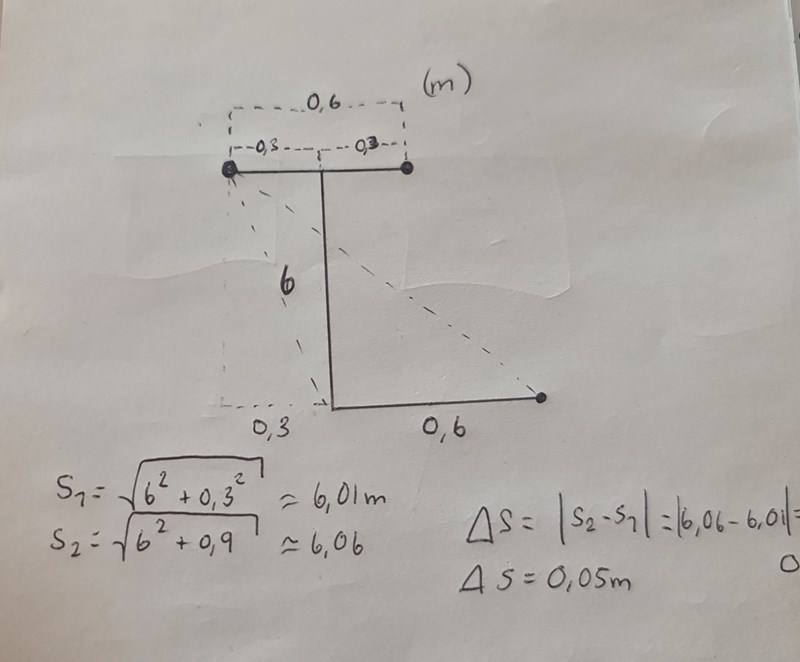 (m)
0,6
0,3 0,3
6
0,3 0,6
S₁ = √(6² + 0,3²) ≈ 6,01m
S₂ = √(6² + 0,9) ≈ 6,06
ΔS = |S₂ - S₁| = |6,06 - 6,01| =
0
ΔS = 0,05m